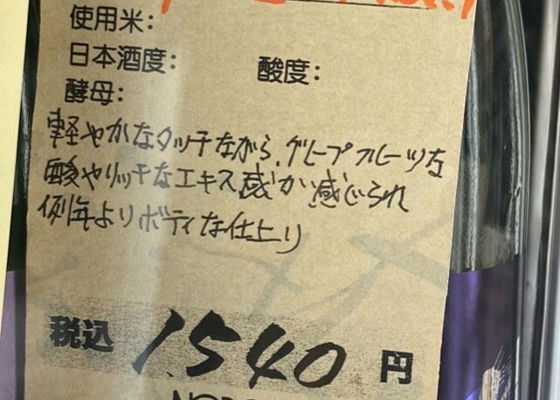 使用米:
日本酒度: 酸度:
酵母:
軽やかなタッチながら、グレープフルーツな
酸やリッチなエキス感が感じられ
例年よりボディな仕上り
税込 1,540 円